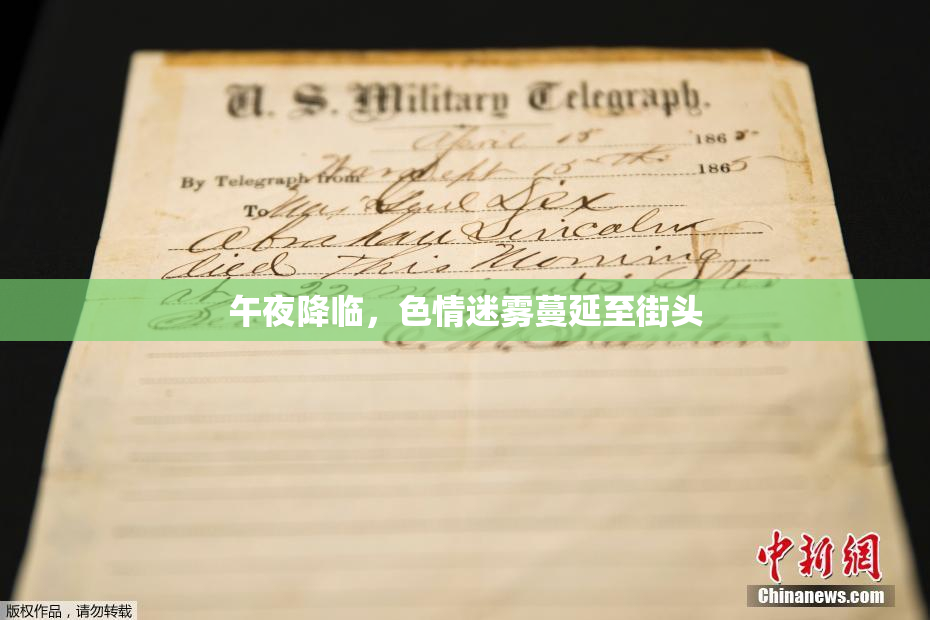 U. S. Military Telegraph.
April 15 1865
By Telegraph from War Dept 15th 1865
To Maj Genl Dix
Abraham Lincoln
died This Morning
at 22 minutes after
午夜降临，色情迷雾蔓延至街头
中新网
Chinanews.com
版权作品，请勿转载